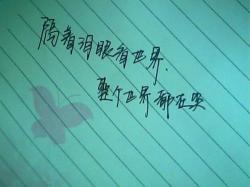 隔着泪眼看世界
整个世界都在哭